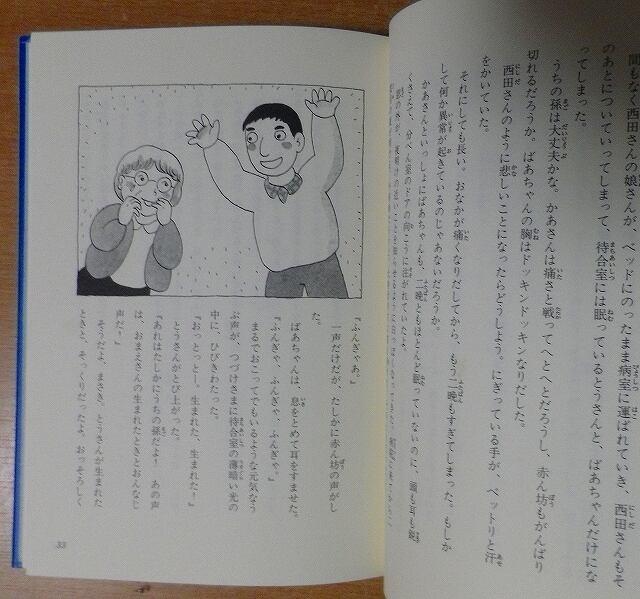 間もなく西田さんの娘さんが、ベッドにのったまま病室に運ばれていき、西田さんもそ
のあとについていってしまって、待合室には眠っているとうさんと、ばあちゃんだけにな
ってしまった。
うちの孫は大丈夫かな。かあさんは痛さと戦ってへとへとだろうし、赤ん坊もがんばり
切れるだろうか。ばあちゃんの胸はドッキンドッキンなりだした。
西田さんのように悲しいことになったらどうしよう。にぎっている手が、ベットリと汗
をかいていた。
それにしても長い。おなかが痛くなりだしてから、もう二晩もすぎてしまった。もしか
して何か異常が起きているのじゃあないだろうか。
かあさんといっしょにばあちゃんも、二晩ともほとんど眠っていないのに、頭も耳も鋭
くさえて、分べん室のドアの向こうに注がれていたよ。
『ふんぎゃあ。』
一声だけだが、たしかに赤ん坊の声がし
た。
ばあちゃんは、息をとめて耳をすませた。
『ふんぎゃ、ふんぎゃ、ふんぎゃ。』
まるでおこってでもいるような元気なう
ぶ声が、つづけさまに待合室の薄暗い光の
中に、ひびきわたった。
『おっとっとー。生まれた、生まれた！』
とうさんがとび上がった。
『あれはたしかにうちの孫だよ！　あの声
は、おまえさんの生まれたときとおんなじ
声だ！』
そうだよ、まさき、とうさんが生まれた
ときと、そっくりだったよ、おっそろしく
33